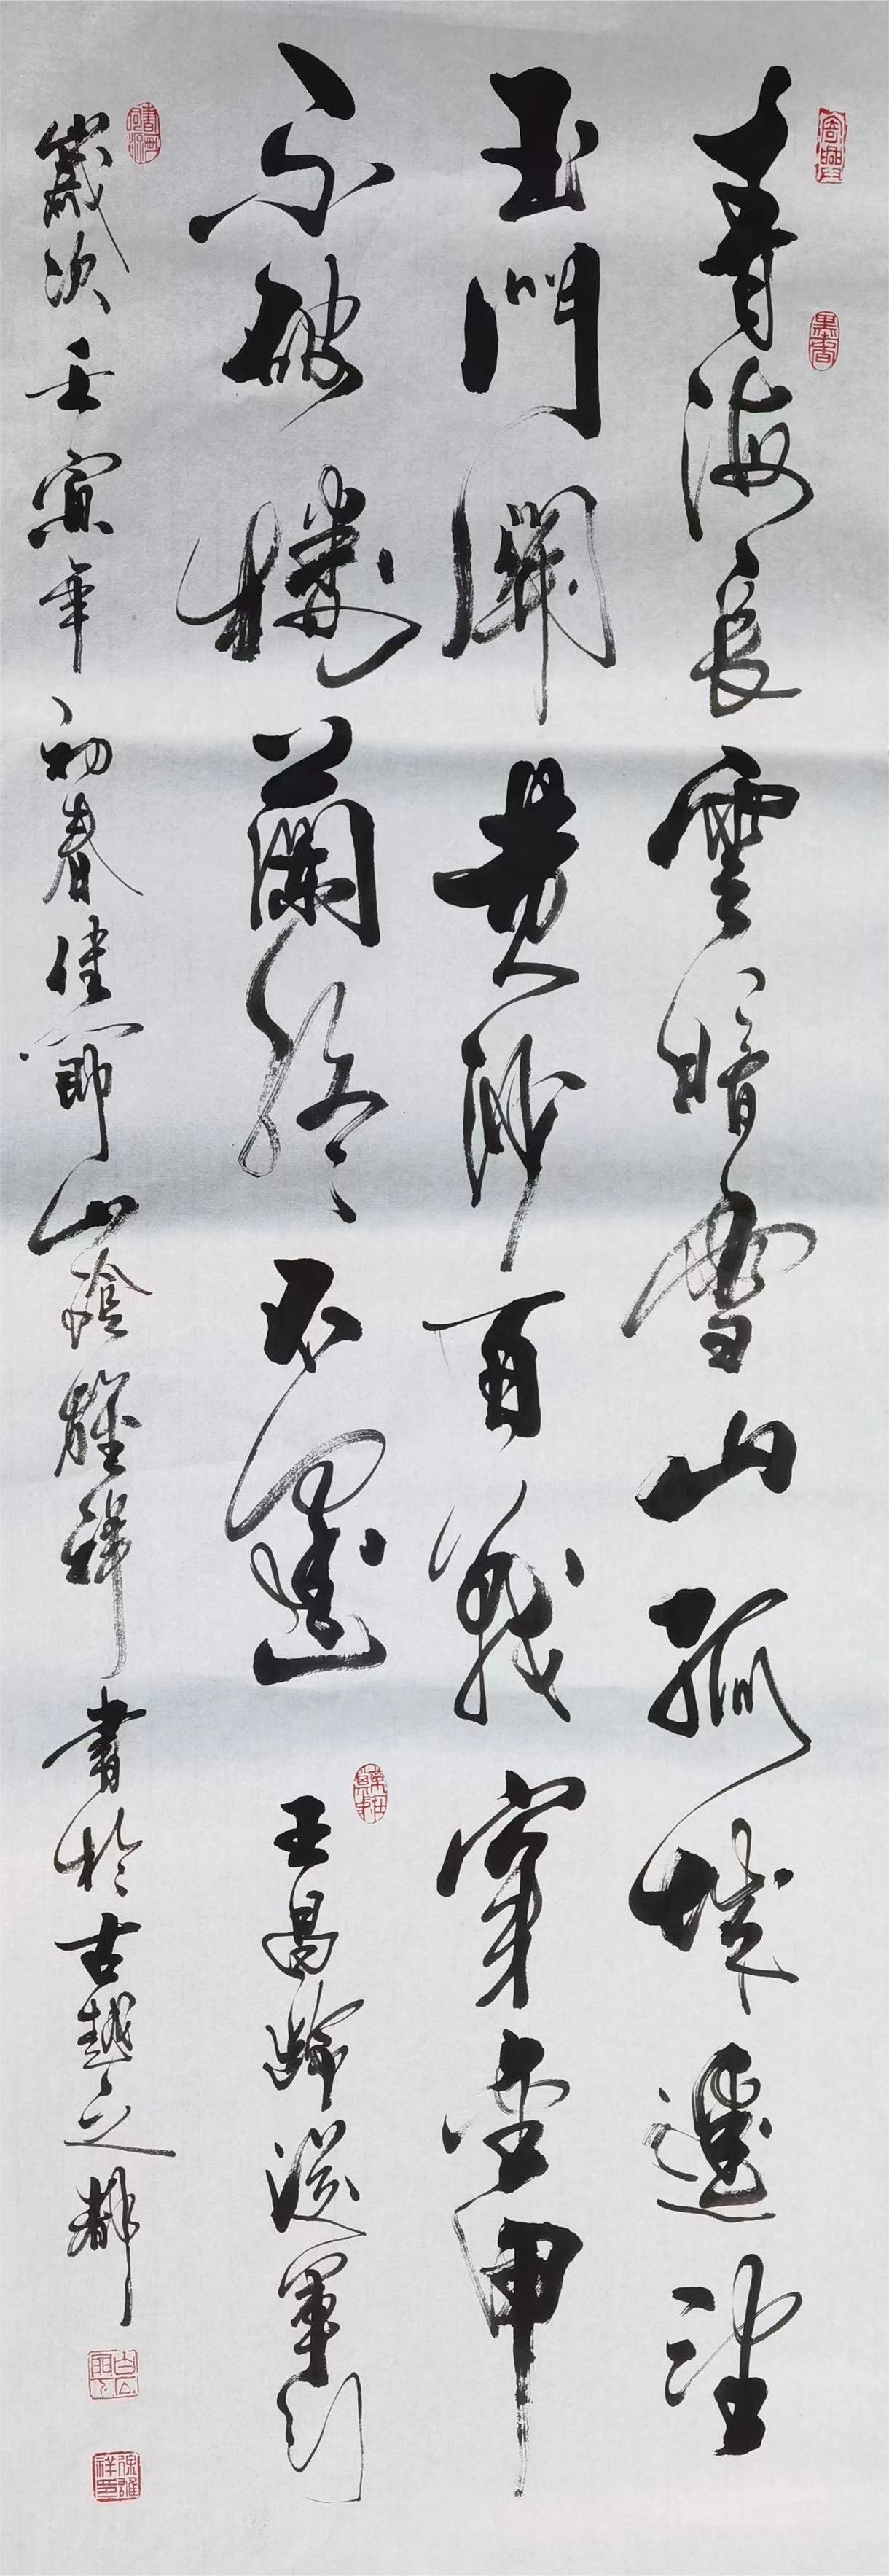 青海長雲暗雪山孤城遥望
玉門關黄沙百戰穿金甲
不破樓蘭終不還
王昌齡從軍行
歲次壬寅年初春佳節山陰雄祥書於古越之都
徐雄祥印